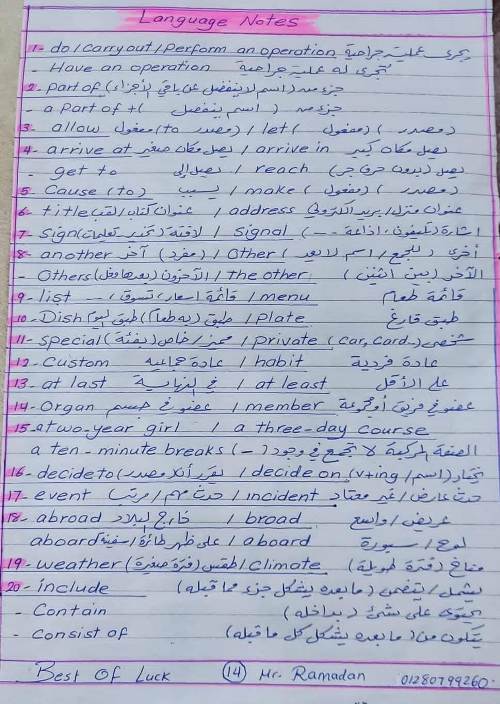 Language Notes
1- do / carry out / Perform an operation يجرى عملية جراحية
- Have an operation تُجرى له عملية جراحية
2- part of (اسم لا ينفصل عن باقي الأجزاء) جزء من
- a part of +( اسم ينفصل ) جزء من
3- allow مفعول (to مصدر) / let ( مفعول ) ( مصدر )
4- arrive at يصل مكان صغير / arrive in يصل مكان كبير
- get to يصل إلى / reach (بدون حرف جر) يصل
5- Cause (to) يسبب / make ( مفعول ) ( مصدر )
6- title عنوان كتاب / لقب / address عنوان منزل / بريد الكتروني
7- Sign لافتة (تحذير، تعليمات) / signal (--- تليفون، اذاعة) اشارة
8- another آخر (مفرد) / Other (للجمع / اسم لا يعد) أخرى
- Others الآخرون (بعدها فعل) / the other (بين اثنين) الآخر
9- list قائمة اسعار، تسوق، --- / menu قائمة طعام
10- Dish طبق (به طعام) طبق اليوم / plate طبق فارغ
11- special خاص / مميز (بفئة) / private (car, card..) شخصى
12- Custom عادة جماعية / habit عادة فردية
13- at last في النهاية / at least على الأقل
14- Organ عضو في جسم / member عضو في فريق أو مجموعة
15- a two-year girl / a three-day course
a ten-minute breaks (-) الصفة المركبة لا تجمع في وجود
16- decide to (مصدر) يقرر أن / decide on (v+ing / اسم) يختار
17- event حدث مهم / مرتب / incident حدث عارض / غير معتاد
18- abroad خارج البلاد / broad عريض / واسع
aboard على ظهر طائرة / سفينة / a board لوح / سبورة
19- weather طقس (فترة صغيرة) / climate مناخ (فترة طويلة)
20- include يشمل / يتضمن (ما بعده يشكل جزء مما قبله)
- Contain يحتوى على شئ (بداخله)
- consist of يتكون من (ما بعده يشكل كل ما قبله)
Best Of Luck 14 Mr. Ramadan 01280799260